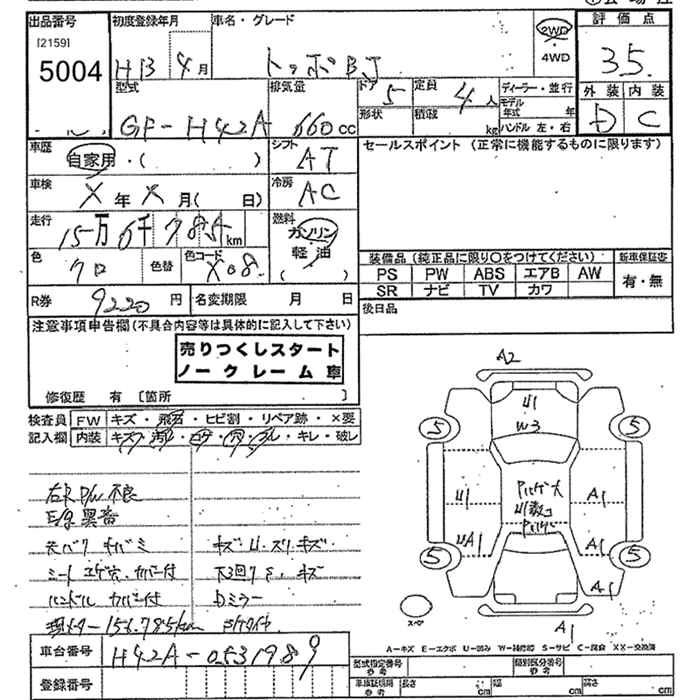 出品番号 初度登録年月 車名・グレード 評価点
[2159]
5004
H13年 4月 トッポBJ 2WD・4WD 35
型式 排気量 ドア 5 定員 4人 ディーラー・並行 外装 内装
GF-H42A 660cc 形状 積載 kg モデル年式 年 D C
ハンドル 左・右
車歴 自家用・( ) シフト AT セールスポイント (正常に機能するものに限ります)
車検 X年X月( 日) 冷房 AC
走行 15万6千785km 燃料 ガソリン 軽油 ( )
色 クロ 色替 色コード X08
装備品 (純正品に限り○をつけてください) 新車保証書
PS PW ABS エアB AW 有・無
SR ナビ TV カワ
R券 9220円 名変期限 月 日 後日品
注意事項申告欄(不具合内容等は具体的に記入して下さい)
売りつくしスタート
ノークレーム車
修復歴 有 [箇所 ]
検査員 FW キズ・飛石・ヒビ割・リペア跡・×要
記入欄 内装 キズ・汚レ・コゲ・穴・スレ・キレ・破レ
右R P/W 不良
E/g 異音
天バリ キバミ キズ・U・スリキズ
シート コゲ穴・カバー付 下回りS・キズ
ハンドル カバー付 Dミラー
現メーター 156,785km
A2
U1
W3
5 5
U1 A1
A1
5 5
A1
A1
スペア
A=キズ E=エクボ U=凹み W=補修跡 S=サビ C=腐食 XX=交換済
車台番号 H42A-0531989
登録番号
型式指定番号 参考 類別区分番号 参考
車検証積用 参考 長さ cm 幅 cm 高さ cm